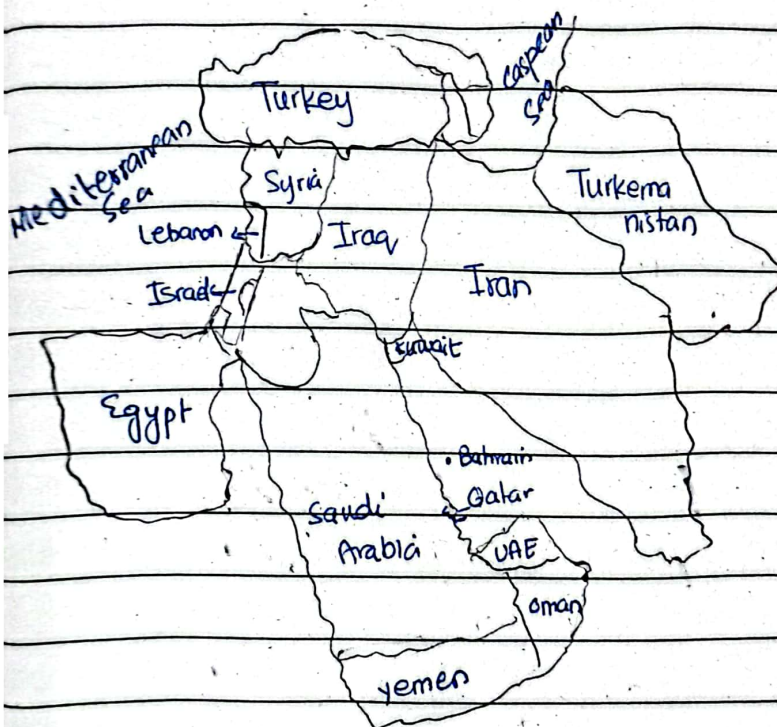 Caspean
Sea
Turkey
Mediterranean
Sea
Syria
Turkema
nistan
Lebanon
Iraq
Israel
Iran
Kuwait
Egypt
Bahrain
Qatar
Saudi
Arabia
UAE
Oman
Yemen